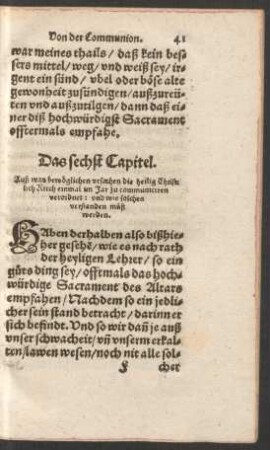 Von der Communion. 41
war meines thails / daß kein bes-
sers mittel / weg / vnd weiß sey / ir-
gent ein sünd / vbel oder böse alte
gewonheit zusündigen / außzureü-
ten vnnd außzutilgen / dann daß ei-
ner diß hochwürdigst Sacrament
offtermals empfahe.
Das sechst Capitel.
Auß was bewöglichen vrsachen die heilig Christ-
lich Kirch einmal im Jar zu communicieren
verordnet: vnd wie solches
verstanden müß
werden.
HAben derhalben also bißhie-
her gesehē / wie es nach rath
der heyligen Lehrer / so ein
gůts ding sey / offtmals das hoch-
würdige Sacrament des Altars
empfahen / Nachdem so ein jedli-
cher sein stand betracht / darinn er
sich befindt. Vnd so wir dañ je auß
vnser schwacheit / vñ vnserm erkal-
ten / lawen wesen / noch nit alle sol-
F cher